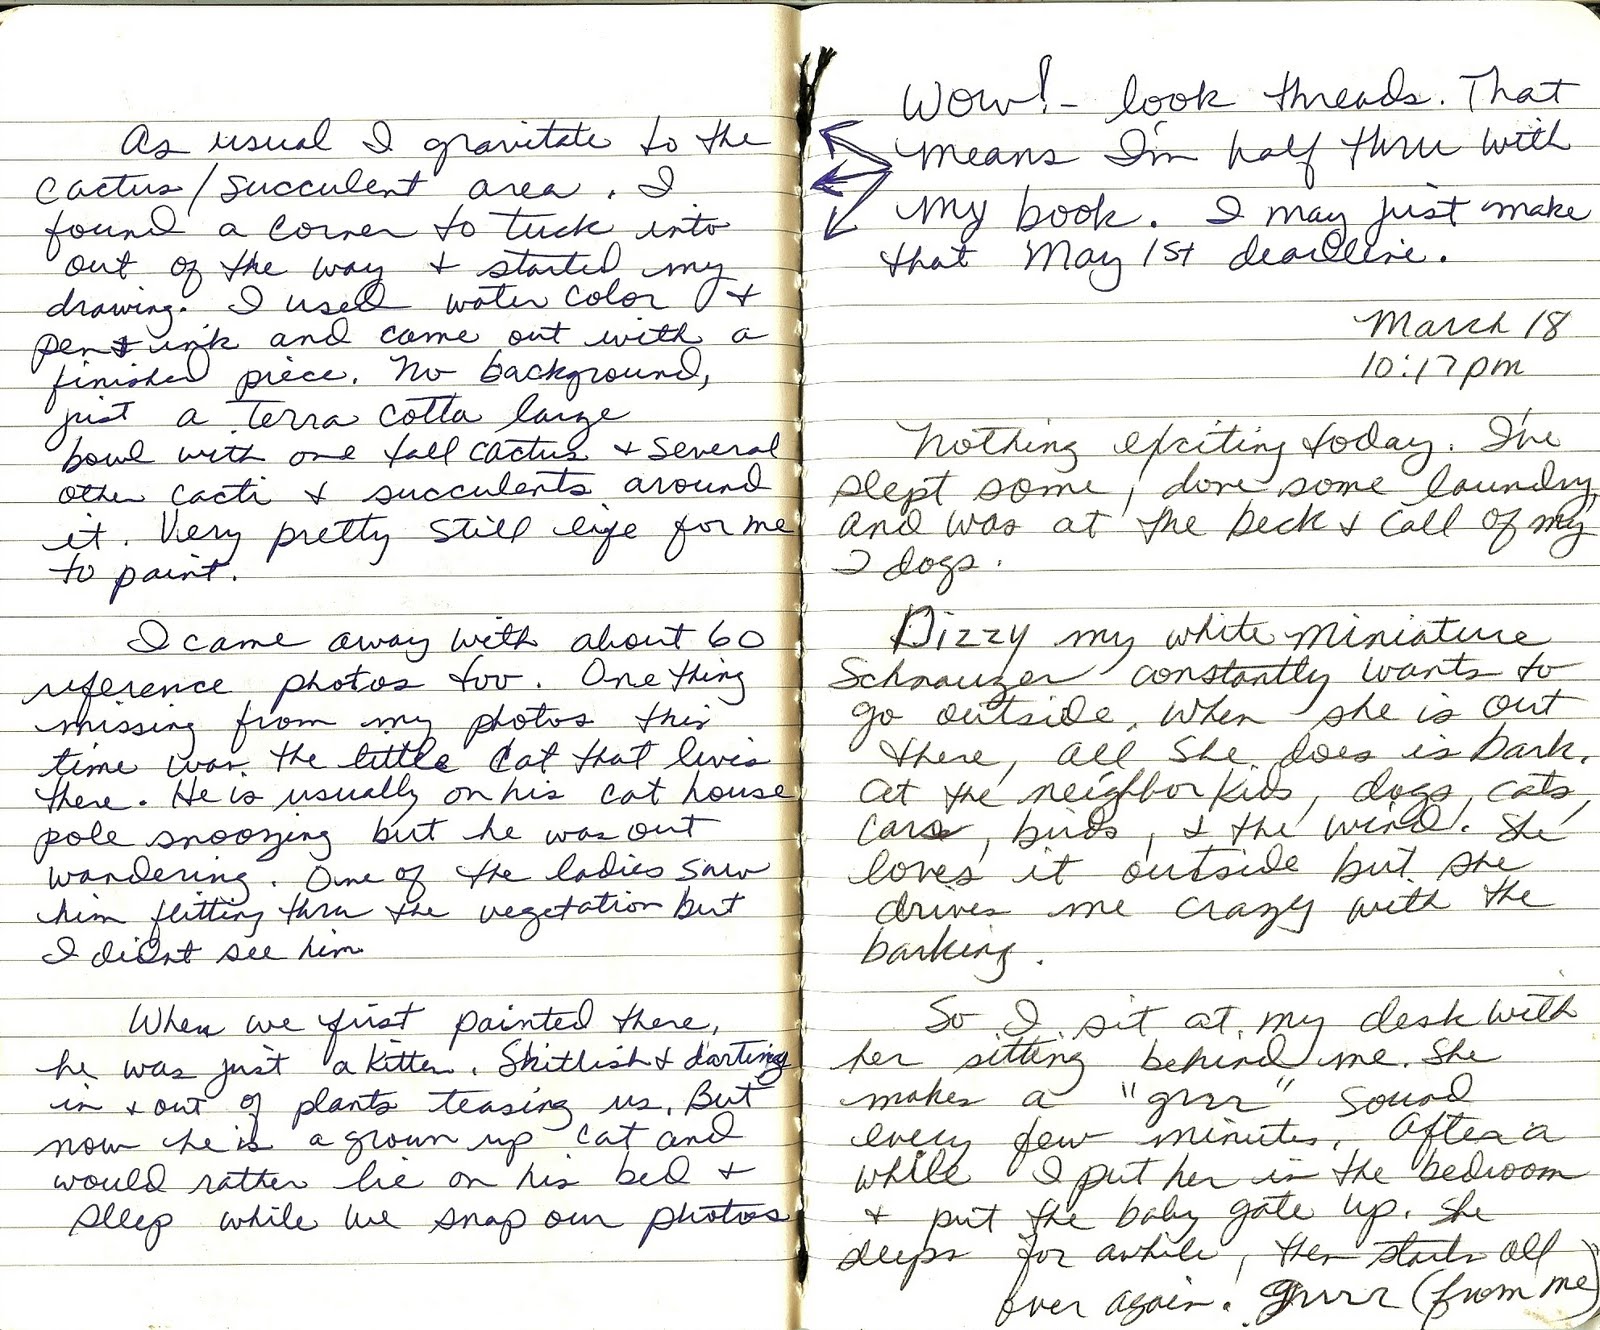 As usual I gravitate to the
cactus/succulent area. I
found a corner to tuck into
out of the way & started my
drawing. I used water color &
pen & ink and came out with a
finished piece. No background,
just a terra cotta large
bowl with one tall cactus & several
other cacti & succulents around
it. Very pretty still life for me
to paint.
I came away with about 60
reference photos too. One thing
missing from my photos this
time was the little cat that lives
there. He is usually on his cat house
pole snoozing but he was out
wandering. One of the ladies saw
him flitting thru the vegetation but
I didnt see him
When we first painted there,
he was just a kitten. Skittish & darting
in & out of plants teasing us. But
now he is a grown up cat and
would rather lie on his bed &
sleep while we snap our photos
Wow! - look threads. That
means I'm half thru with
my book. I may just make
that May 1st deadline.
March 18
10:17pm
Nothing exciting today. I've
slept some, done some laundry,
and was at the beck & call of my
2 dogs.
Dizzy my white miniature
Schnauzer constantly wants to
go outside. When she is out
there, all she does is bark.
At the neighbor kids, dogs, cats,
cars, birds, & the wind. She
loves it outside but she
drives me crazy with the
barking.
So I sit at my desk with
her sitting behind me. She
makes a "grrr" sound
every few minutes. After a
while I put her in the bedroom
& put the baby gate up. She
sleeps for awhile, then starts all
over again. Grrrr (from me)